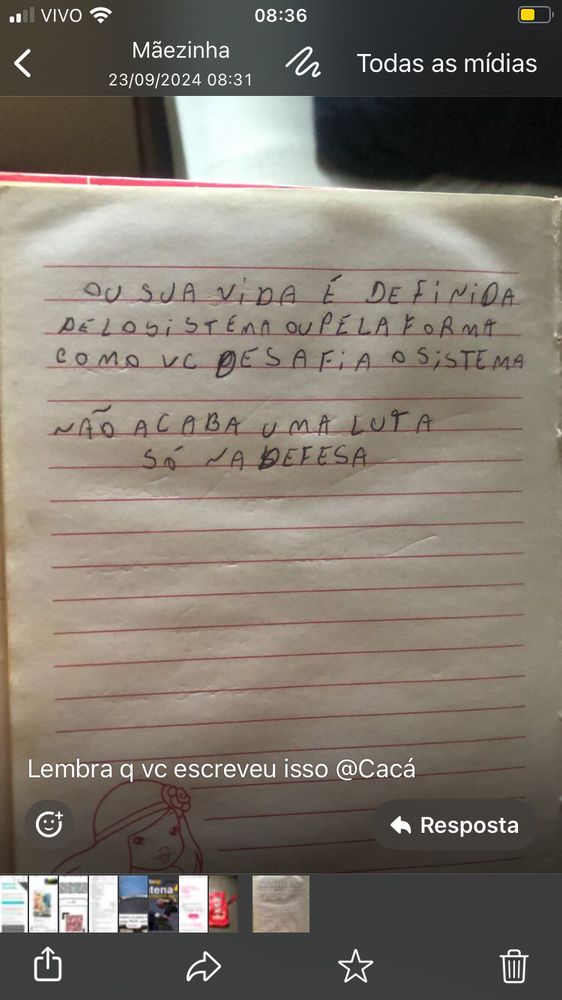 VIVO 08:36
Mãezinha
23/09/2024 08:31
Todas as mídias
OU SUA VIDA É DEFINIDA
PELO SISTEMA OU PELA FORMA
COMO VC DESAFIA O SISTEMA
NÃO ACABA UMA LUTA
SÓ NA DEFESA
Lembra q vc escreveu isso @Cacá
Resposta